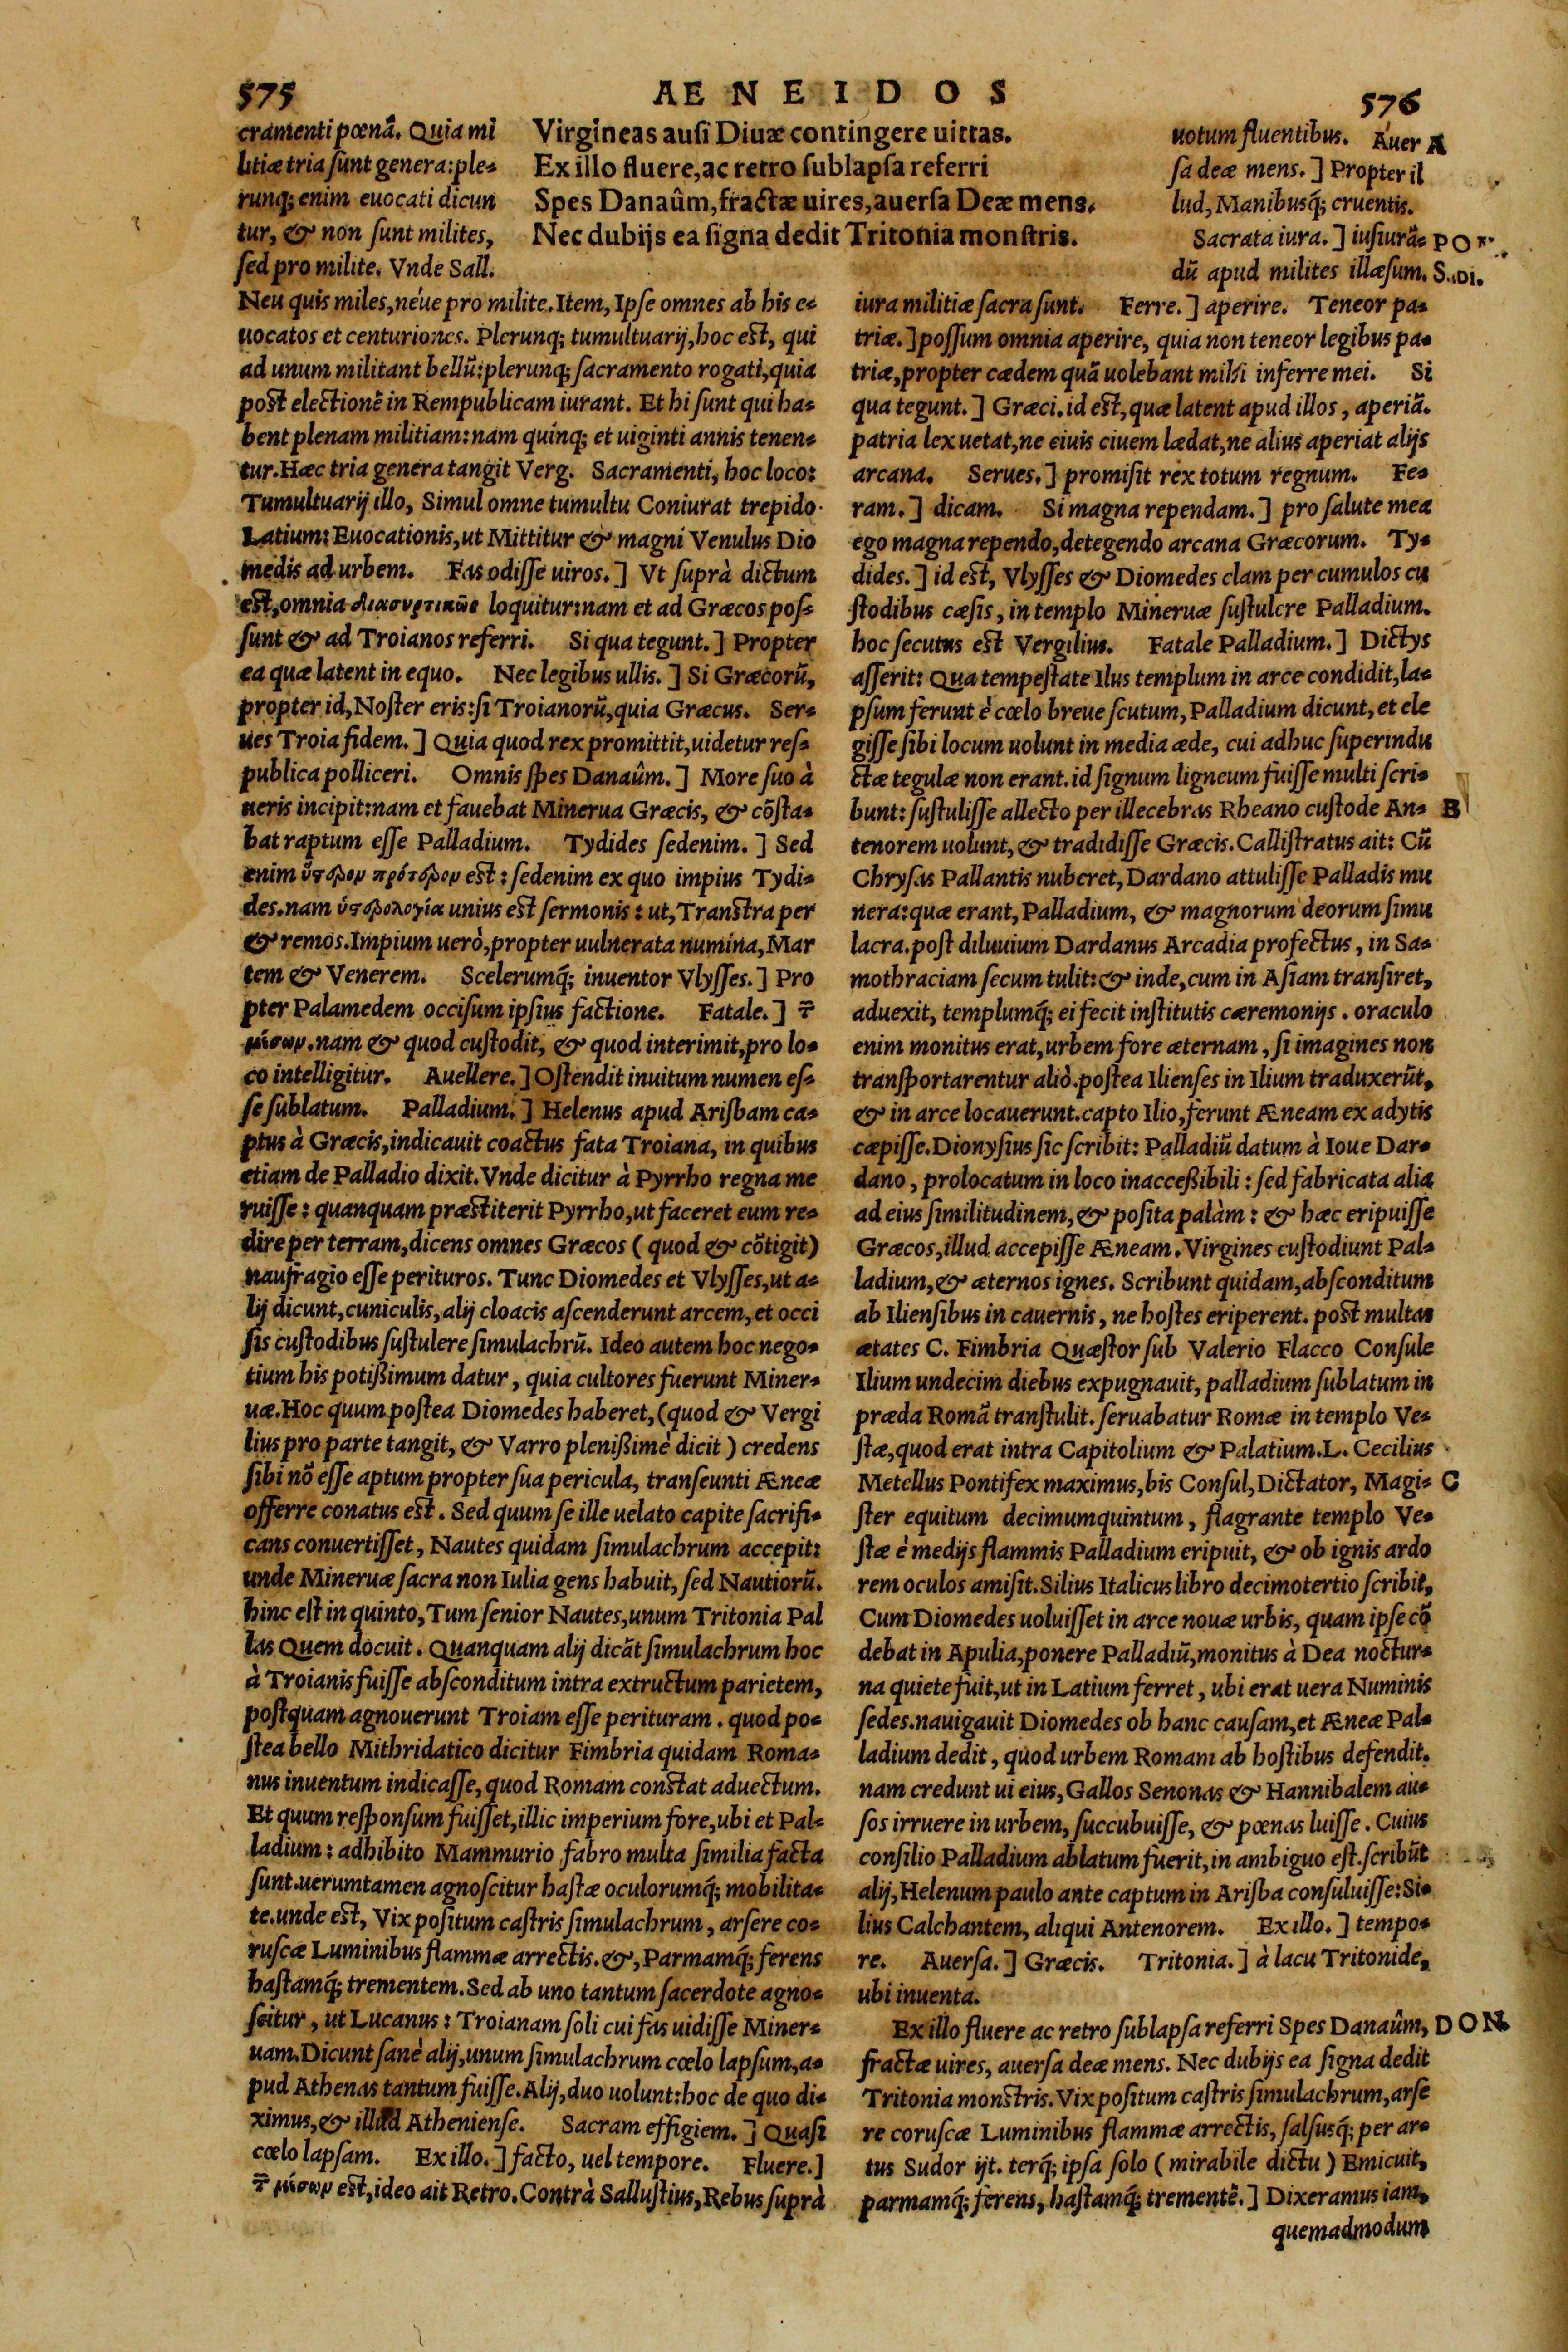 575
AENEIDOS
576
Virgineas ausi Diuæ contingere uittas.
Ex illo fluere, ac retro sublapsa referri
Spes Danaûm, fractæ uires, auersa Deæ mens.
Nec dubijs ea signa dedit Tritonia monstris.
cramenti pœnã. Quia mi
litiæ tria sunt genera: ple-
runq; enim euocati dicun
tur, & non sunt milites,
sed pro milite. Vnde Sall.
Neu quis miles, néue pro milite. Item, Ipse omnes ab his e-
uocatos et centuriones. Plerunq; tumultuarij, hoc est, qui
ad unum militant bellũ: plerunq; sacramento rogati, quia
post electionẽ in Rempublicam iurant. Et hi sunt qui ha-
bent plenam militiam: nam quinq; et uiginti annis tenen-
tur. Hæc tria genera tangit Verg. Sacramenti, hoc loco:
Tumultuarij illo, Simul omne tumultu Coniurat trepido
Latium: Euocationis, ut Mittitur & magni Venulus Dio
medis ad urbem. Fas odisse uiros.] Vt suprà dictum
est, omnia διασυρτικῶς loquitur: nam et ad Græcos pos-
sunt & ad Troianos referri. Si qua tegunt.] Propter
ea quæ latent in equo. Nec legibus ullis.] Si Græcorũ,
propter id, Noster eris: si Troianorũ, quia Græcus. Ser-
ues Troia fidem.] Quia quod rex promittit, uidetur res-
publica polliceri. Omnis spes Danaûm.] More suo à
ueris incipit: nam et fauebat Minerua Græcis, & cõsta-
bat raptum esse Palladium. Tydides sedenim.] Sed
enim ὕστερον πρότερον est: sedenim ex quo impius Tydi-
des. nam ὑστερολογία unius est sermonis: ut, Transtra per
& remos. Impium uerò, propter uulnerata numina, Mar
tem & Venerem. Scelerumq́; inuentor Vlysses.] Pro
pter Palamedem occisum ipsius factione. Fatale.] τῶν
μέσων. nam & quod custodit, & quod interimit, pro lo-
co intelligitur. Auellere.] Ostendit inuitum numen es-
se sublatum. Palladium.] Helenus apud Arisbam ca-
ptus à Græcis, indicauit coactus fata Troiana, in quibus
etiam de Palladio dixit. Vnde dicitur à Pyrrho regna me
ruisse: quanquam præstiterit Pyrrho, ut faceret eum re-
dire per terram, dicens omnes Græcos (quod & cõtigit)
naufragio esse perituros. Tunc Diomedes et Vlysses, ut a-
lij dicunt, cuniculis, alij cloacis ascenderunt arcem, et occi
sis custodibus sustulere simulachrũ. Ideo autem hoc nego-
tium his potißimum datur, quia cultores fuerunt Miner-
uæ. Hoc quum postea Diomedes haberet, (quod & Vergi
lius pro parte tangit, & Varro plenißimè dicit) credens
sibi nõ esse aptum propter sua pericula, transeunti Æneæ
offerre conatus est. Sed quum se ille uelato capite sacrifi-
cans conuertisset, Nautes quidam simulachrum accepit:
unde Mineruæ sacra non Iulia gens habuit, sed Nautiorũ.
hinc est in quinto, Tum senior Nautes, unum Tritonia Pal
las Quem docuit. Quanquam alij dicãt simulachrum hoc
à Troianis fuisse absconditum intra extructum parietem,
postquam agnouerunt Troiam esse perituram. quod po-
stea bello Mithridatico dicitur Fimbria quidam Roma-
nus inuentum indicasse, quod Romam constat aduectum.
Et quum responsum fuisset, illic imperium fore, ubi et Pal-
ladium: adhibito Mammurio fabro multa similia facta
sunt. uerumtamen agnoscitur hastæ oculorumq́; mobilita-
te. unde est, Vix positum castris simulachrum, arsere co-
ruscæ Luminibus flammæ arrectis. &, Parmamq́; ferens
hastamq́; trementem. Sed ab uno tantum sacerdote agno-
scitur, ut Lucanus: Troianam soli cui fas uidisse Miner-
uam. Dicunt sanè alij, unum simulachrum cœlo lapsum, a-
pud Athenas tantum fuisse. Alij, duo uolunt: hoc de quo di-
ximus, & illud Atheniense. Sacram effigiem.] Quasi
cœlo lapsam. Ex illo.] facto, uel tempore. Fluere.]
τῶν μέσων est, ideo ait Retro. Contrà Sallustius, Rebus suprà
uotum fluentibus. Auer A
sa deæ mens.] Propter il
lud, Manibusq́; cruentis.
Sacrata iura.] iusiurã- POM
dũ apud milites illæsum. SABI.
iura militiæ sacra sunt. Ferre.] aperire. Teneor pa-
triæ.] possum omnia aperire, quia non teneor legibus pa-
triæ, propter cædem quã uolebant mihi inferre mei. Si
qua tegunt.] Græci. id est, quæ latent apud illos, aperiã.
patria lex uetat, ne ciuis ciuem lædat, ne alius aperiat alijs
arcana. Serues.] promisit rex totum regnum. Fe-
ram.] dicam. Si magna rependam.] pro salute mea
ego magna rependo, detegendo arcana Græcorum. Ty-
dides.] id est, Vlysses & Diomedes clam per cumulos cu
stodibus cæsis, in templo Mineruæ sustulere Palladium.
hoc secutus est Vergilius. Fatale Palladium.] Dictys
asserit: Qua tempestate Ilus templum in arce condidit, la-
psum ferunt è cœlo breue scutum, Palladium dicunt, et ele
gisse sibi locum uolunt in media æde, cui adhuc superindu
ctæ tegulæ non erant. id signum ligneum fuisse multi scri-
bunt: sustulisse allecto per illecebras Rheano custode An- B
tenorem uolunt, & tradidisse Græcis. Callistratus ait: Cũ
Chrysas Pallantis nuberet, Dardano attulisse Palladis mu
nera: quæ erant, Palladium, & magnorum deorum simu
lacra. post diluuium Dardanus Arcadia profectus, in Sa-
mothraciam secum tulit: & inde, cum in Asiam transiret,
aduexit, templumq́; ei fecit institutis cæremonijs. oraculo
enim monitus erat, urbem fore æternam, si imagines non
transportarentur aliò. postea Ilienses in Ilium traduxerũt,
& in arce locauerunt. capto Ilio, ferunt Æneam ex adytis
cæpisse. Dionysius sic scribit: Palladiũ datum à Ioue Dar-
dano, prolocatum in loco inacceßibili: sed fabricata alia
ad eius similitudinem, & posita palàm: & hæc eripuisse
Græcos, illud accepisse Æneam. Virgines custodiunt Pal-
ladium, & æternos ignes. Scribunt quidam, absconditum
ab Iliensibus in cauernis, ne hostes eriperent. post multas
ætates C. Fimbria Quæstor sub Valerio Flacco Consule
Ilium undecim diebus expugnauit, palladium sublatum in
præda Romã transtulit. seruabatur Romæ in templo Ve-
stæ, quod erat intra Capitolium & Palatium. L. Cecilius
Metellus Pontifex maximus, bis Consul, Dictator, Magi- C
ster equitum decimumquintum, flagrante templo Ve-
stæ è medijs flammis Palladium eripuit, & ob ignis ardo
rem oculos amisit. Silius Italicus libro decimotertio scribit,
Cum Diomedes uoluisset in arce nouæ urbis, quam ipse cõ
debat in Apulia, ponere Palladiũ, monitus à Dea noctur-
na quiete fuit, ut in Latium ferret, ubi erat uera Numinis
sedes. nauigauit Diomedes ob hanc causam, et Æneæ Pal-
ladium dedit, quod urbem Romam ab hostibus defendit.
nam credunt ui eius, Gallos Senonas & Hannibalem au-
sos irruere in urbem, succubuisse, & pœnas luisse. Cuius
consilio Palladium ablatum fuerit, in ambiguo est. scribũt
alij, Helenum paulo ante captum in Arisba consuluisse: Si-
lius Calchantem, aliqui Antenorem. Ex illo.] tempo-
re. Auersa.] Græcis. Tritonia.] à lacu Tritonide,
ubi inuenta.
Ex illo fluere ac retro sublapsa referri Spes Danaûm, DON.
fractæ uires, auersa deæ mens. Nec dubijs ea signa dedit
Tritonia monstris. Vix positum castris simulachrum, arse
re coruscæ Luminibus flammæ arrectis, salsusq́; per ar-
tus Sudor ijt. terq́; ipsa solo (mirabile dictu) Emicuit,
parmamq́; ferens, hastamq́; trementẽ.] Dixeramus iam,
quemadmodum